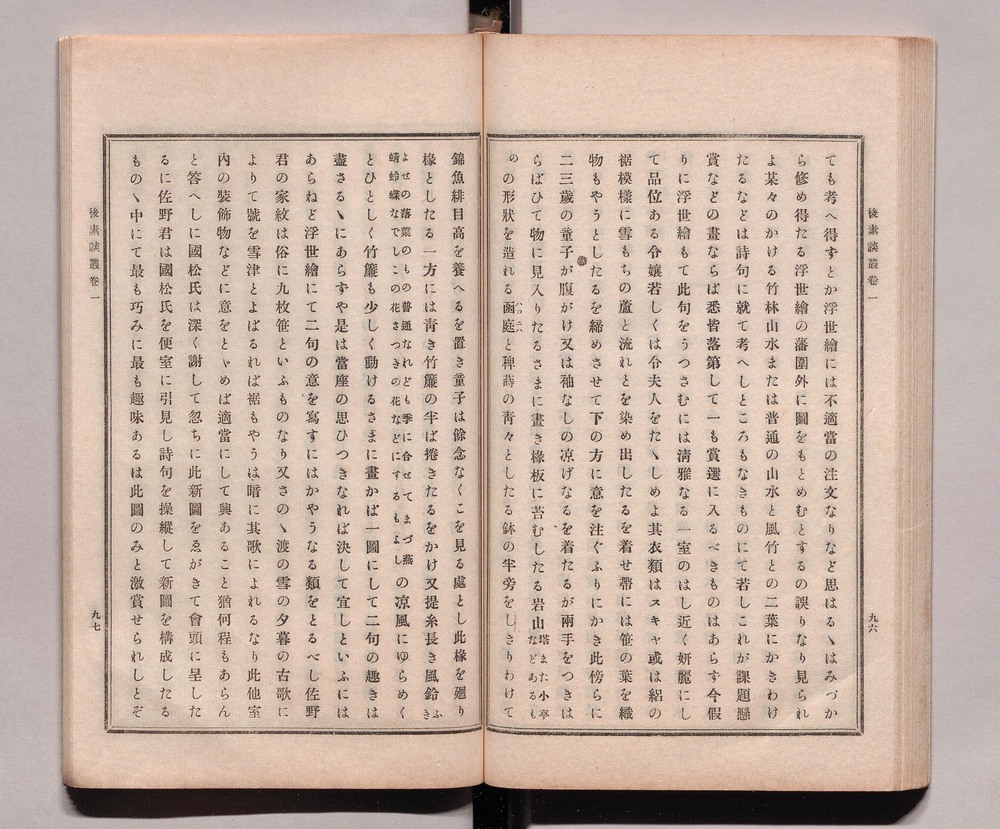 後素談叢卷一
九六
ても考へ得すとか浮世繪には不適當の注文なりなど思はるヽはみづか
ら修め得たる浮世繪の藩圍外に圖をもとめむとするの誤りなり見られ
よ某々のかける竹林山水または普通の山水と風竹との二葉にかきわけ
たるなどは詩句に就て考へしところもなきものにて若しこれが課題懸
賞などの畫ならば悉皆落第して一も賞選に入るべきものはあらす今假
りに浮世繪もて此句をうつさむには淸雅なる一室のはし近く妍麗にし
て品位ある令孃若しくは令夫人をたヽしめよ其衣類はスキャ或は絽の
裾模樣に雪もちの蘆と流れとを染め出したるを着せ帶には笹の葉を織
物もやうとしたるを締めさせて下の方に意を注ぐふりにかき此傍らに
二三歲の童子が腹がけ又は袖なしの凉げなるを着たるが兩手をつきは
らばひて物に見入りたるさまに畫き椽板に苔むしたる岩山塔また小亭などあるも
のの形狀を造れる函庭ハコニハと稗蒔の靑々としたる鉢の半旁をしきりわけて
錦魚緋目高を養へるを置き童子は餘念なくこを見る處とし此椽を廻り
椽としたる一方には靑き竹簾の半ば捲きたるをかけ又提糸長き風鈴ふき
よせの落葉のもの普通なれども季に合せてまづ燕
蜻蛉蝶なでしこの花さつきの花などにするもよしの凉風にゆらめく
とひとしく竹簾も少しく動けるさまに畫かば一圖にして二句の趣きは
盡さるヽにあらすや是は當座の思ひつきなれば決して宜しといふには
あらねど浮世繪にて二句の意を寫すにはかやうなる類をとるべし佐野
君の家紋は俗に九枚笹といふものなり又さのヽ渡の雪の夕暮の古歌に
よりて號を雪津とよばるれば裾もやうは暗に其歌によれるなり此他室
內の裝飾物などに意をとヾめば適當にして興あること猶何程もあらん
と答へしに國松氏は深く謝して忽ちに此新圖をゑがきて會頭に呈した
るに佐野君は國松氏を便室に引見し詩句を操縱して新圖を構成したる
ものヽ中にて最も巧みに最も趣味あるは此圖のみと激賞せられしとぞ
後素談叢卷一
九七